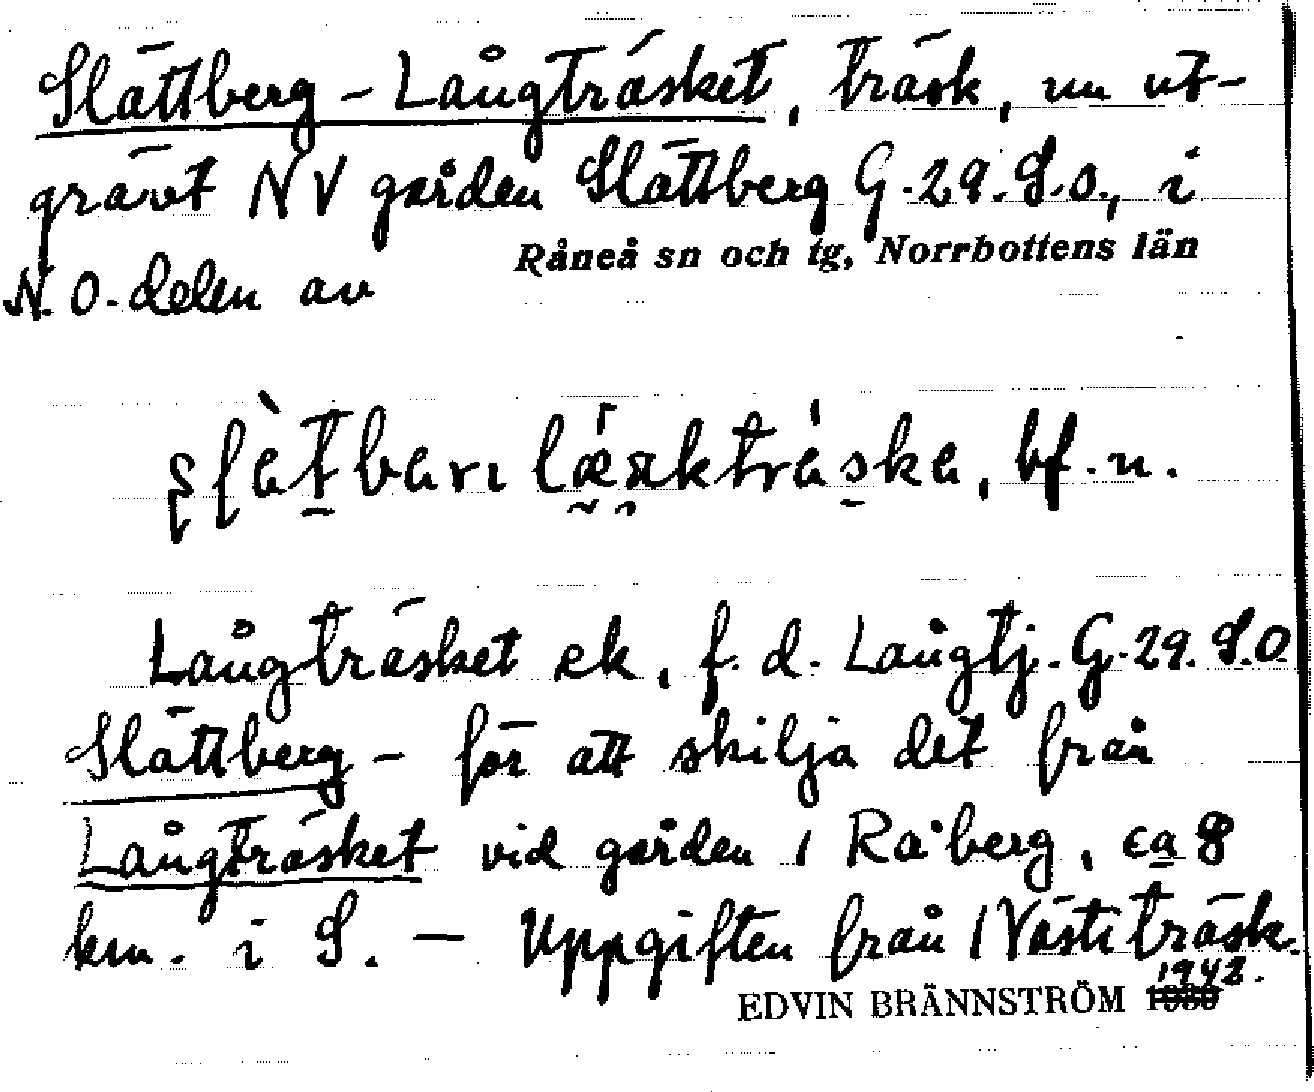 Slättberg-Långträsket, träsk, nu ut-
grävt NV gården Slättberg G.29.S.O., i
Råneå sn och tg, Norrbottens län
N.O-delen av
bf. n.
Långträsket ek, f. d. Långtj. G.29. S.O
Slättberg- för att skilja det från
Långträsket vid gården i Råberg, ca 8
km. i S. — Uppgiften från
1942.
EDVIN BRÄNNSTRÖM 1930